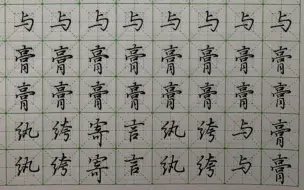 与与与与与与与与
膏膏膏膏膏膏膏膏
膏膏膏膏膏膏膏膏
纨绔寄言纨绔与膏
纨绔寄言纨绔与膏